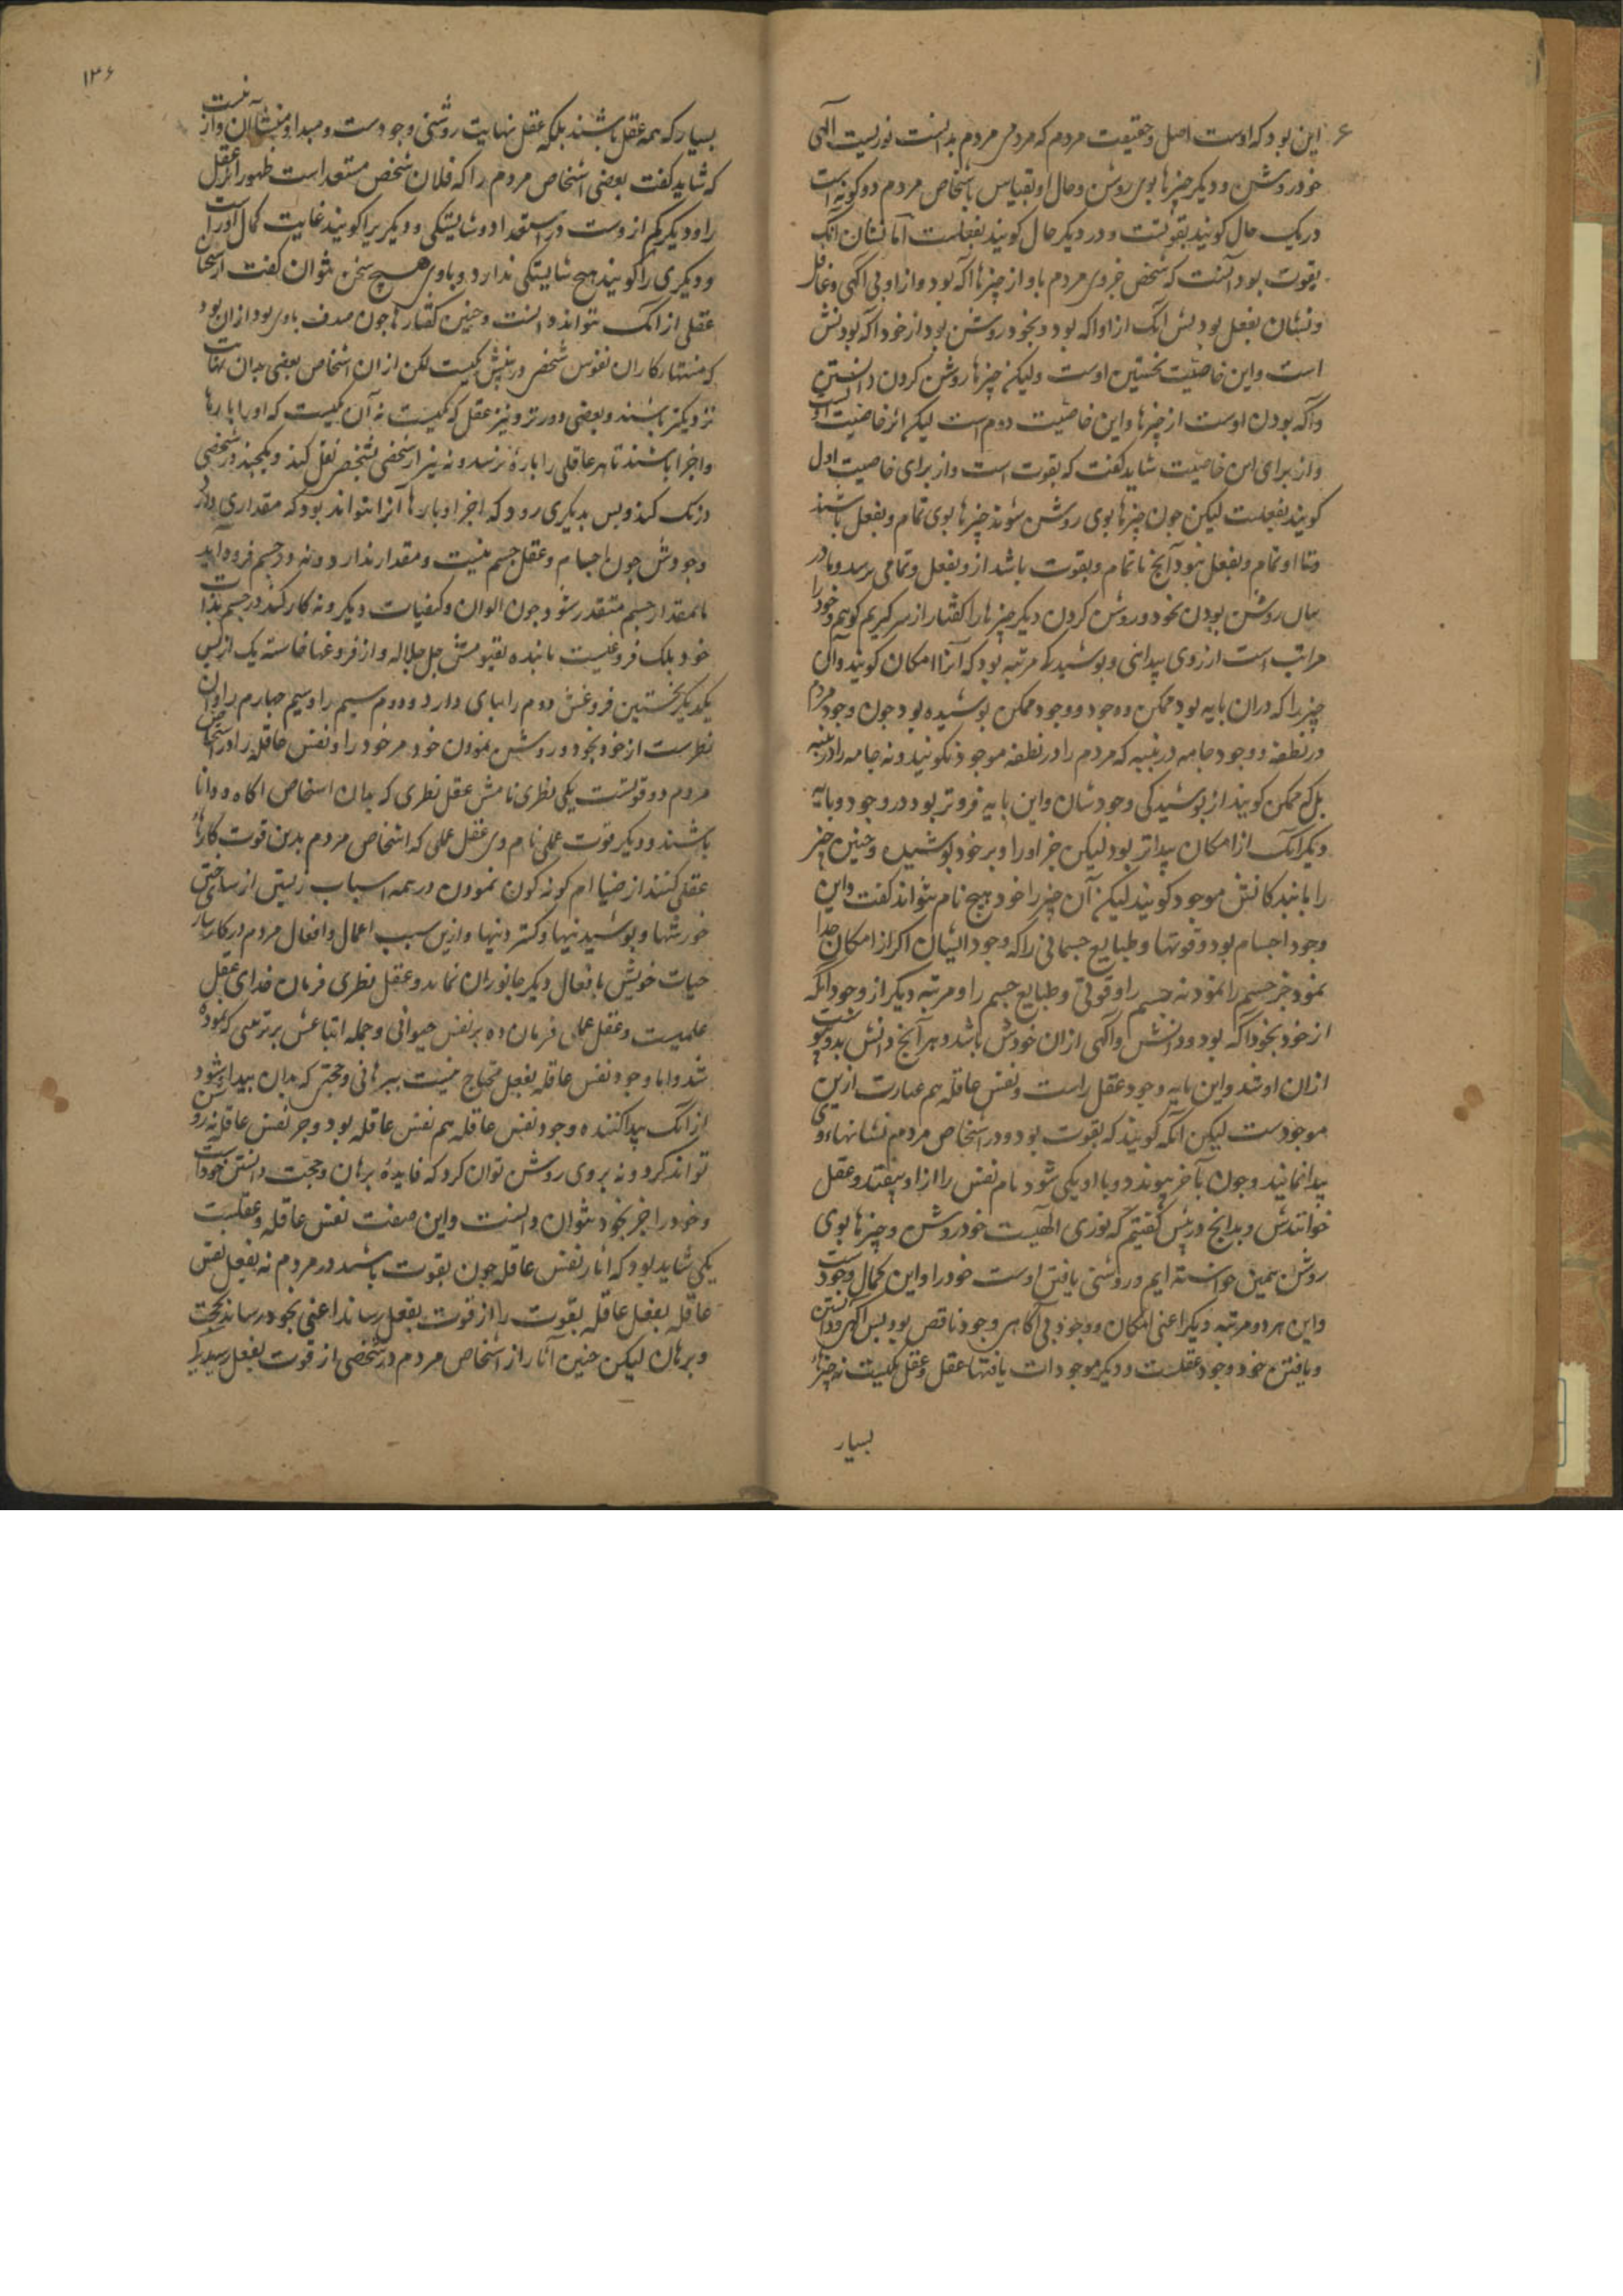 این بود که اوست اصل و حقیقت مردم که مردمی مردم بدانست نوریست الهی
خود روشن و دیگر چیزها بوی روشن و حال او بقیاس باشخاص مردم دو گونه است
در یک حال گویند بقوتست و در دیگر حال گویند بفعلست اما نشان آنک
بقوت بود آنست که شخص جزوی مردم باو از چیزها آگه بود و از او بی آگهی و غافل
و نشان بفعل بودنش آنک از او آگه بود و بخود روشن بود از خود آگه بودنش
است و این خاصیت نخستین اوست ولیکن چیزها روشن کردن دانستن
و آگه بودن اوست از چیزها و این خاصیت دوم است لیکن اثر خاصیت
و از برای این خاصیت شاید گفت که بقوت است و از برای خاصیت اول
گویند بفعلست لیکن چون چیزها بوی روشن شوند چیزها بوی تمام و بفعل باشند
و تا او تمام و بفعل نبود آنچ ناتمام و بقوت باشد ازو بفعل و تمامی نرسد و ما در
بیان روشن بودن بخود و روشن کردن دیگر چیزها را گفتار از سر گیریم گوییم وجود را
مراتب است از روی پیدائی و پوشیدگی مرتبه بود که آنرا امکان گویند و آن
چیز را که در آن پایه بود ممکن وجود و وجود ممکن پوشیده بود چون وجود مردم
در نطفه و وجود جامه در پنبه که مردم را در نطفه موجود نگویند و نه جامه را در پنبه
بل که ممکن گویند از پوشیدگی وجودشان و این پایه فروتر بود در وجود و پایه
دیگر آنک از امکان پیداتر بود لیکن جز او را و بر خود پوشیده و چنین چیز
را یابند کانش موجود گویند لیکن آن چیز را خود هیچ نام نتواند گفت و این
وجود اجسام بود و قوتها و طبایع جسمانی را که وجود ایشان اگر از امکان جدا
نمود جز جسم را نمود نه جسم را و قوتی و طبایع جسم را و مرتبه دیگر از وجود آنکه
از خود بخود آگه بود و دانش و آگهی از آن خودش باشد و هر آنچ دانش بدو پیوست
از آن او شد و این پایه وجود عقل راست و نفس عاقله هم عبارت ازین
موجودست لیکن آنگه گویند که بقوت بود و در اشخاص مردم نشانهاء وی
پیدا نمایند و چون بآخر پیوندد و با او یکی شود نام نفس را از او بیفتد و عقل
خوانندش و بدانچ در پیش گفتیم که نوری الهیست خود روشن و چیزها بوی
روشن همین خواسته ایم و روشنی یافتن اوست خود را و این کمال وجودست
و این هر دو مرتبه دیگر اعنی امکان و وجود بی آگاهی وجود ناقص بود پس آگهی و دانستن
و یافتن خود وجود عقلست و دیگر موجودات یافتهاء عقل و عقل یکیست نه چیزهاء
بسیار
۱۳۶
بسیار که همه عقل باشند بلکه عقل نهایت روشنی وجودست و مبدا و منشأ آن و از آن نیست
که شاید گفت بعضی اشخاص مردم را که فلان شخص مستعد است ظهور اثر عقل
را و دیگر کم ازوست در استعداد و شایستگی و دیگری را گویند غایت کمال او راست
و دیگری را گویند هیچ شایستگی ندارد و با وی هیچ سخن نتوان گفت از سخنان
عقلی از آنک نتواند دانست و چنین گفتارها چون صدف باوی بود از آن بود
که منتهاء کار آن نفوس شخص در بینش یکیست لکن از آن اشخاص بعضی بدان نهایت
نزدیکتر باشند و بعضی دورتر و نیز عقل که یکیست نه آن یکیست که او را پارها
و اجزا باشند تا هر عاقلی را پارۀ رسد و نه نیز از شخصی بشخص نقل کند و یکچند در شخصی
درنگ کند و پس بدیگری رود که اجزا و پارها آنرا تواند بود که مقداری دارد
وجودش چون اجسام و عقل جسم نیست و مقدار ندارد و نه در جسم فرود آید
تا بمقدار جسم متقدر شود چون الوان و کیفیات دیگر و نه کارکند در جسم بذات
خود بلک فروغیست پاینده بقیومش جل جلاله و از فروغها خاسته یک از پس
یکدیگر نخستین فروغش دوم را بپای دارد و دوم سیم را و سیم چهارم را و آن
نظرست از خود بخود و روشن نمودن خود مر خود را و نفس عاقله را در اشخاص
مردم دو قوتست یکی نظری نامش عقل نظری که بدان اشخاص آگاه و دانا
باشند و دیگر قوت عملی نام وی عقل عملی که اشخاص مردم بدین قوت کارهاء
عقلی کنند از ضیا ام گونه گون نمودن در همه اسباب زیستن از ساختن
خورشها و پوشیدنیها و گستردنیها و ازین سبب اعمال و افعال مردم در کار ساز
حیات خویش بافعال دیگر جانوران نماند و عقل نظری فرمان خدای عقل
عملیست و عقل عملی فرمان ده بر نفس حیوانی و جمله اتباعش بر ترتیبی که نموده
شد و اما وجود نفس عاقله بفعل محتاج نیست ببرهانی و حجتی که بدان پیدا شود
از آنک پیدا کننده وجود نفس عاقله هم نفس عاقله بود و جز نفس عاقله نه روشن
تواند کرد و نه بروی روشن توان کرد که فایدۀ برهان و حجت دانستن خودست
و خود را جز بخود نتوان دانست و این صفت نفس عاقله و عقلیست
یکی شاید بود که آثار نفس عاقله چون بقوت باشد در مردم نه بفعل نفس
عاقله بفعل عاقله بقوت را از قوت بفعل رساند اعنی بخود رساند بحجت
و برهان لیکن چنین آثار از اشخاص مردم در شخصی از قوت بفعل رسیده